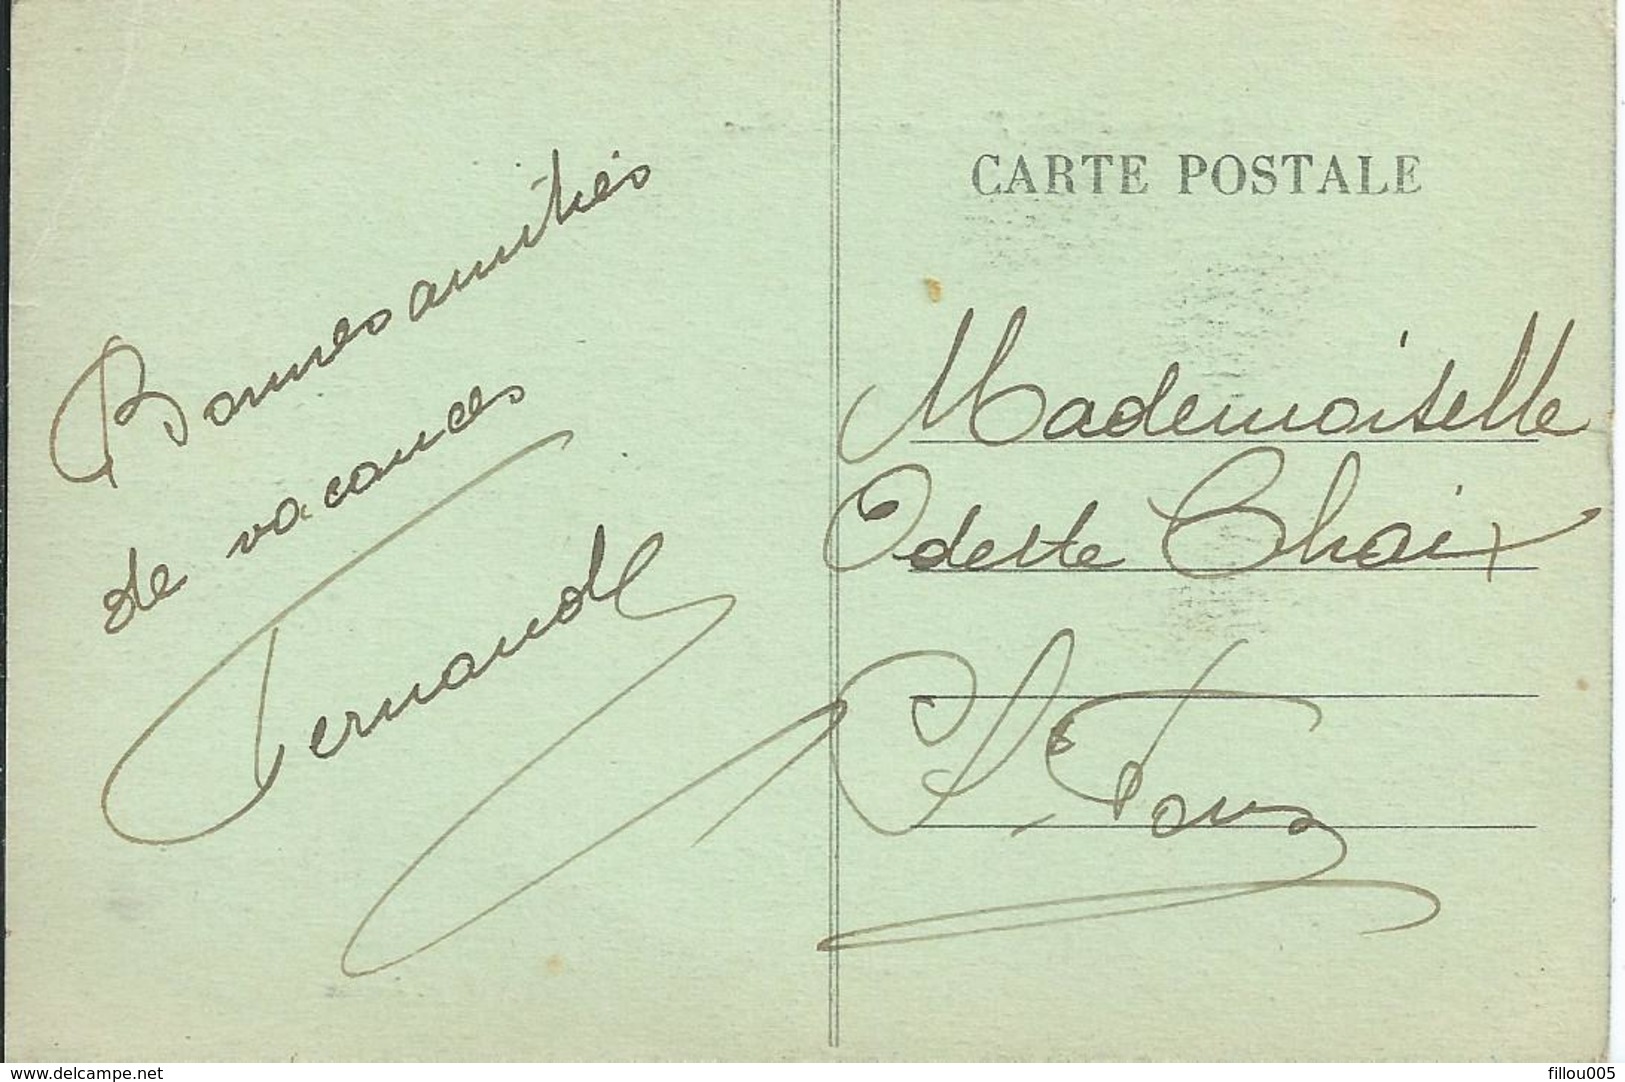 Bonnes amitiés
de vacances
Fernande
CARTE POSTALE
Mademoiselle
Odette Chaix
St
www.delcampe.net
fillou005